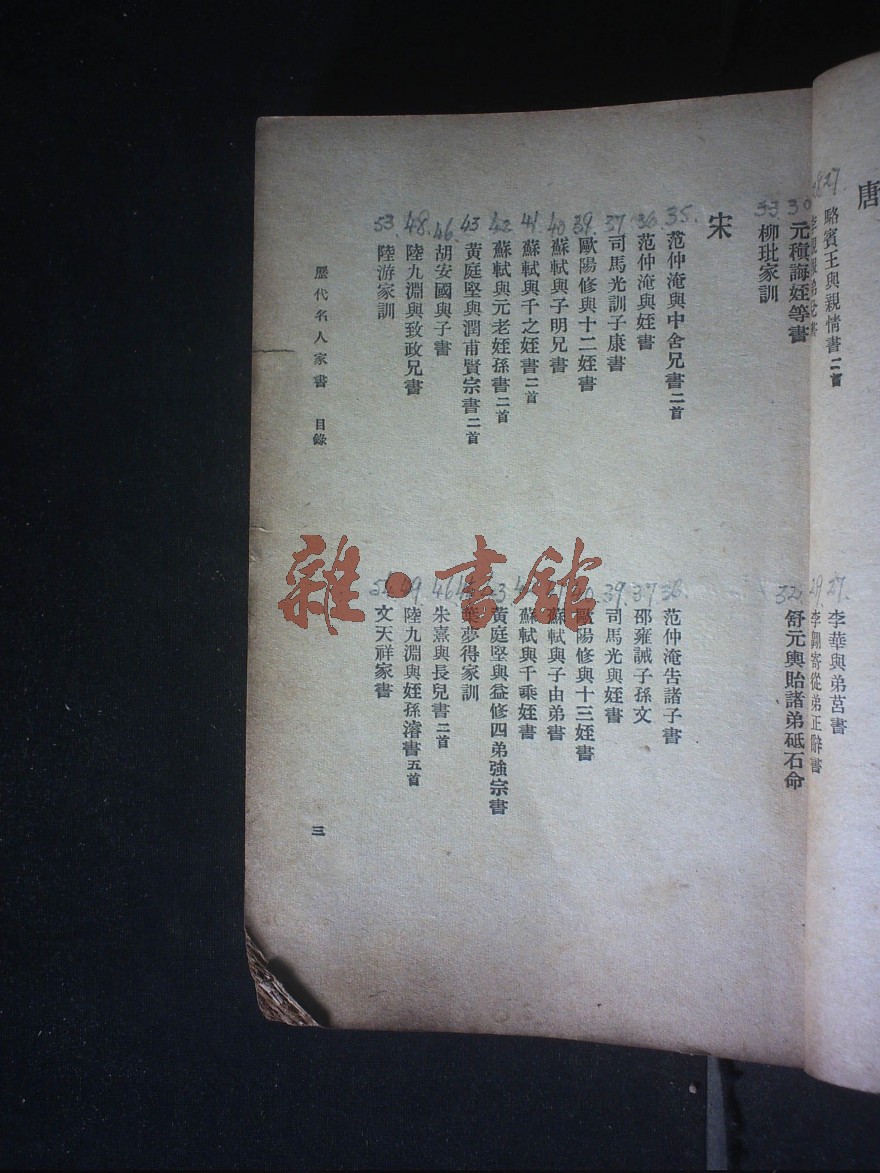 唐
駱賓王與親情書二首
27.
李華與弟莒書
27.
李翺寄從弟正辭書
29.
元稹誨姪等書
30
舒元輿貽諸弟砥石命
32.
柳玭家訓
33
宋
35.
范仲淹與中舍兄書二首
36.
范仲淹告諸子書
36
范仲淹與姪書
37
邵雍誡子孫文
37
司馬光訓子康書
39.
司馬光與姪書
39.
歐陽修與十二姪書
歐陽修與十三姪書
40
蘇軾與子明兄書
蘇軾與子由弟書
41.
蘇軾與千之姪書二首
蘇軾與千乘姪書
42
蘇軾與元老姪孫書二首
黃庭堅與益修四弟強宗書
43
黃庭堅與潤甫賢宗書二首
葉夢得家訓
46.
胡安國與子書
46
朱熹與長兒書二首
48.
陸九淵與致政兄書
49.
陸九淵與姪孫濬書五首
53
陸游家訓
54
文天祥家書
歷代名人家書 目錄
三
雜·書館